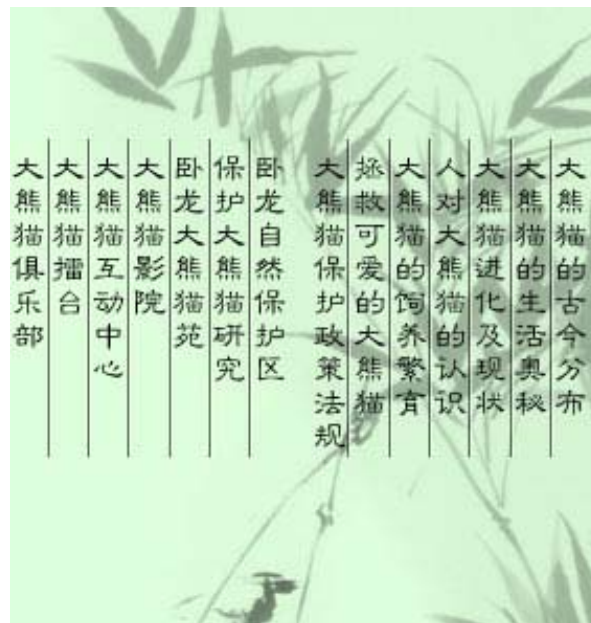 大熊猫的古今分布
大熊猫的生活奥秘
大熊猫进化及现状
人对大熊猫的认识
大熊猫的饲养繁育
拯救可爱的大熊猫
大熊猫保护政策法规
卧龙自然保护区
保护大熊猫研究
卧龙大熊猫苑
大熊猫影院
大熊猫互动中心
大熊猫擂台
大熊猫俱乐部